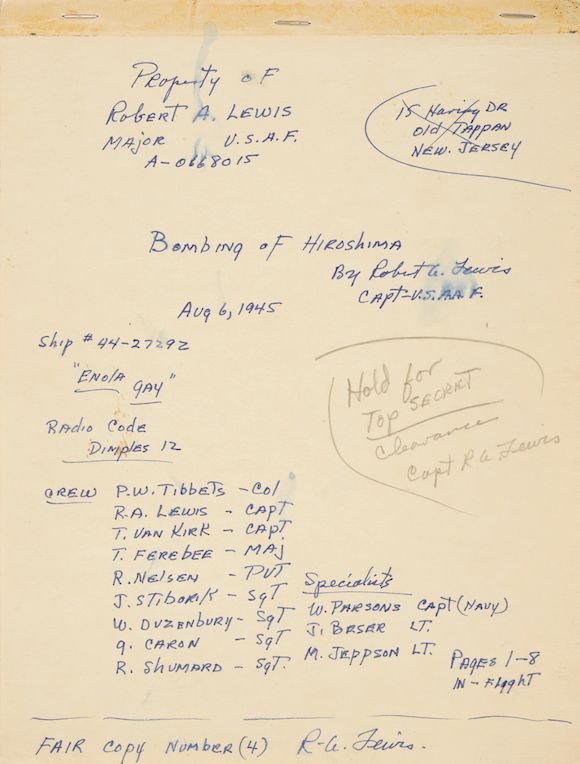 Property of
Robert A. Lewis
Major U.S.A.F.
A-0668015
15 Haring DR
Old Tappan
New. Jersey
Bombing of Hiroshima
By Robert A. Lewis
Capt-U.S.AA.F.
Aug 6, 1945
Ship # 44-27292
"Enola
Gay"
Hold for
Top Secret
Clearance
Capt R A. Lewis
Radio Code
Dimples 12
Crew P.W. Tibbets - Col
R.A. Lewis - Capt
T. Van Kirk - Capt
T. Ferebee - Maj
R. Nelsen - Pvt
J. Stiborik - Sgt
W. Duzenbury - Sgt
G. Caron - Sgt
R. Shumard - Sgt.
Specialists
W. Parsons Capt (Navy)
J. Beser Lt.
M. Jeppson Lt.
Pages 1-8
In-Flight
Fair Copy Number (4) R-A. Lewis.